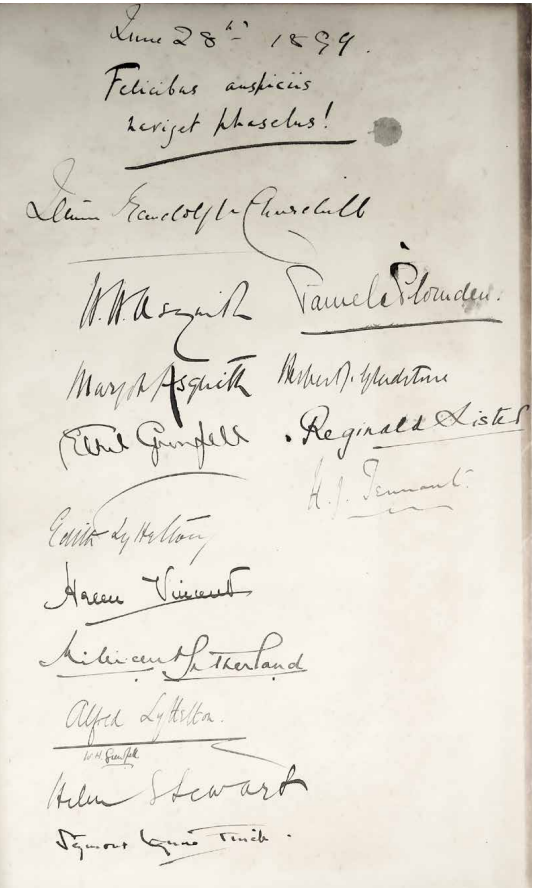 June 28th 1899.
Felicibus auspiciis
naviget phaselus!
Jennie Randolph Churchill
H. H. Asquith Pamela Plowden.
Margot Asquith Herbert J. Gladstone
Grenfell Reginald Lister
H. J. Tennant.
Edith Lyttelton
Helen Vincent
Millicent Sutherland
Alfred Lyttelton.
W. H. Grenfell
Helen Stewart
Seymour Wynne Finch.